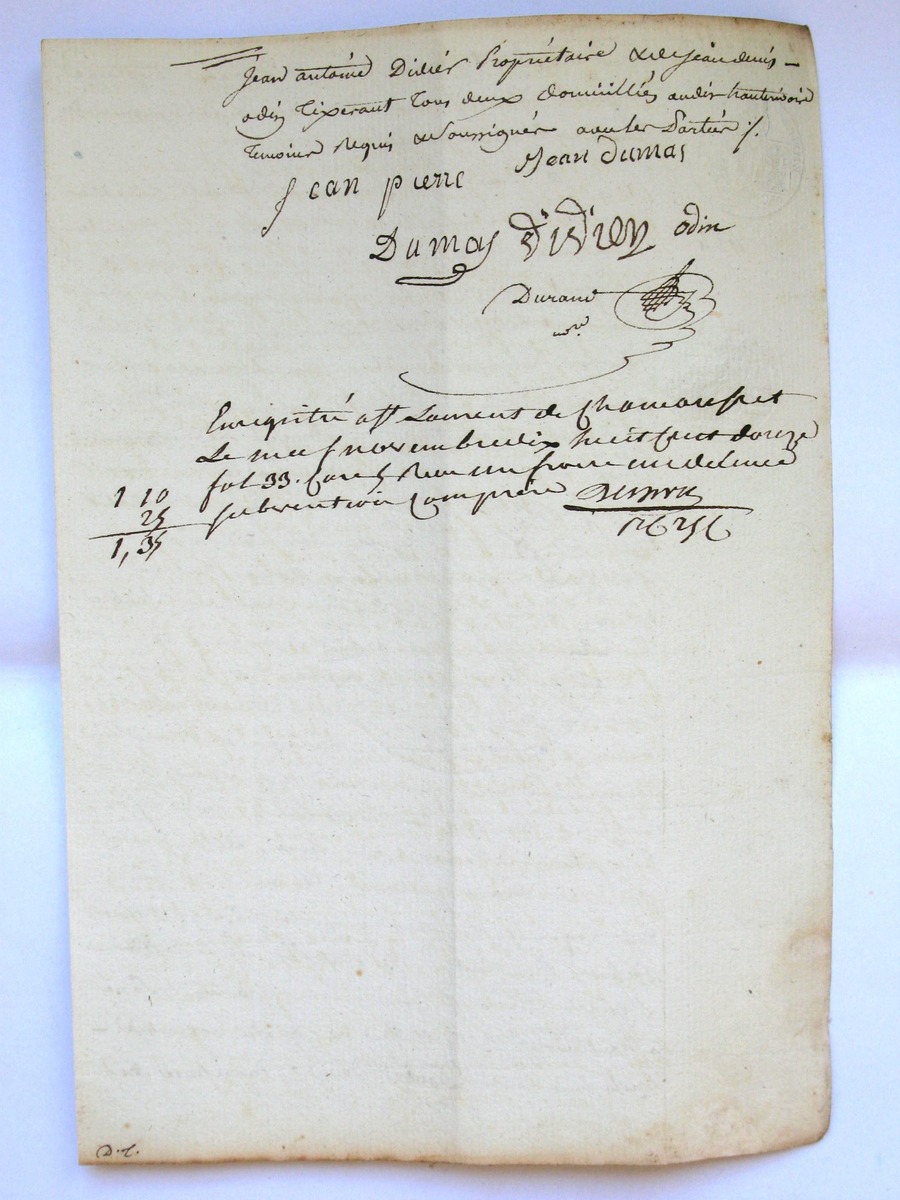 Jean antoine Didier Propriétaire & de Jean denis
odin Tixerant Tous deux Domiciliés audit hauterivoire
Temoins Requis & Soussignés avec les Parties ./.
Jean pierre Jean Dumas
Dumas Didier odin
Durand
nore
Enregistré a St Laurent de Chamousset
Le neuf novembre dix huit cent douze
fol 33. Case 5 Reçu un franc
subvention comprise
1 10
25
1, 35
D. t.